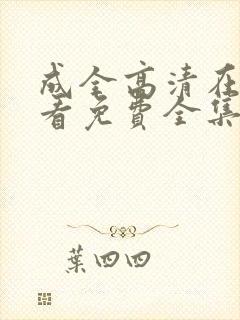 成全高清在
看免费全集
葉四四